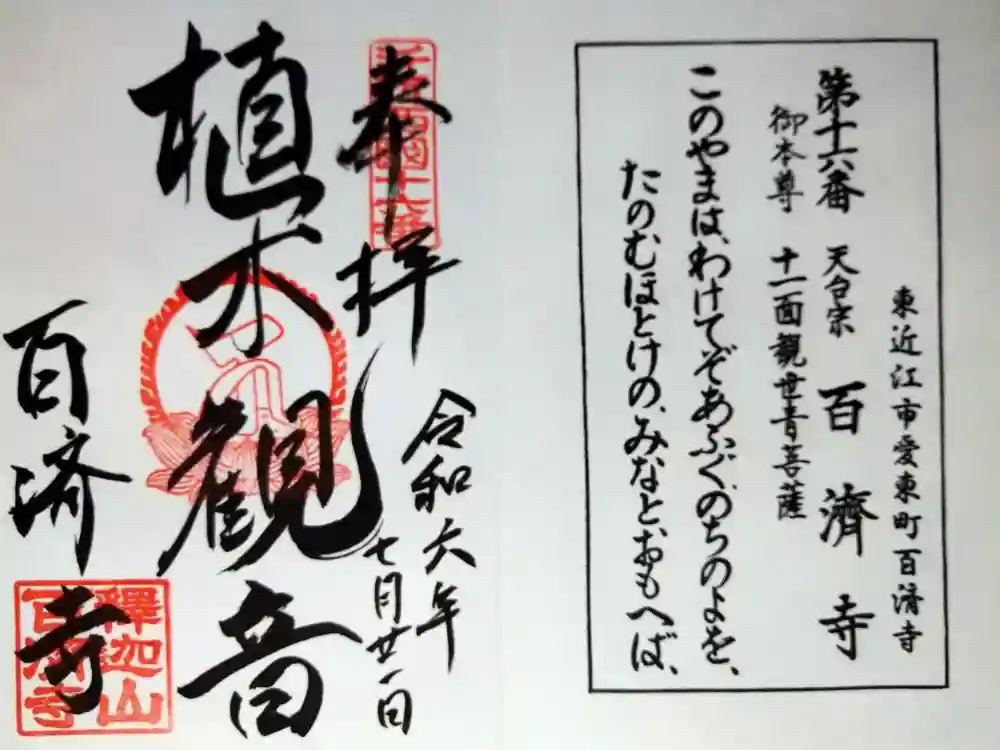 東近江市愛東町百済寺
第十六番 天台宗 百濟寺
御本尊 十一面観世音菩薩
このやまは、わけてぞあふぐ、のちのよを、
たのむほとけの、みなと、おもへば、
奉拝
令和六年
七月廿一日
植木観音
百済寺
釋迦山
百濟寺